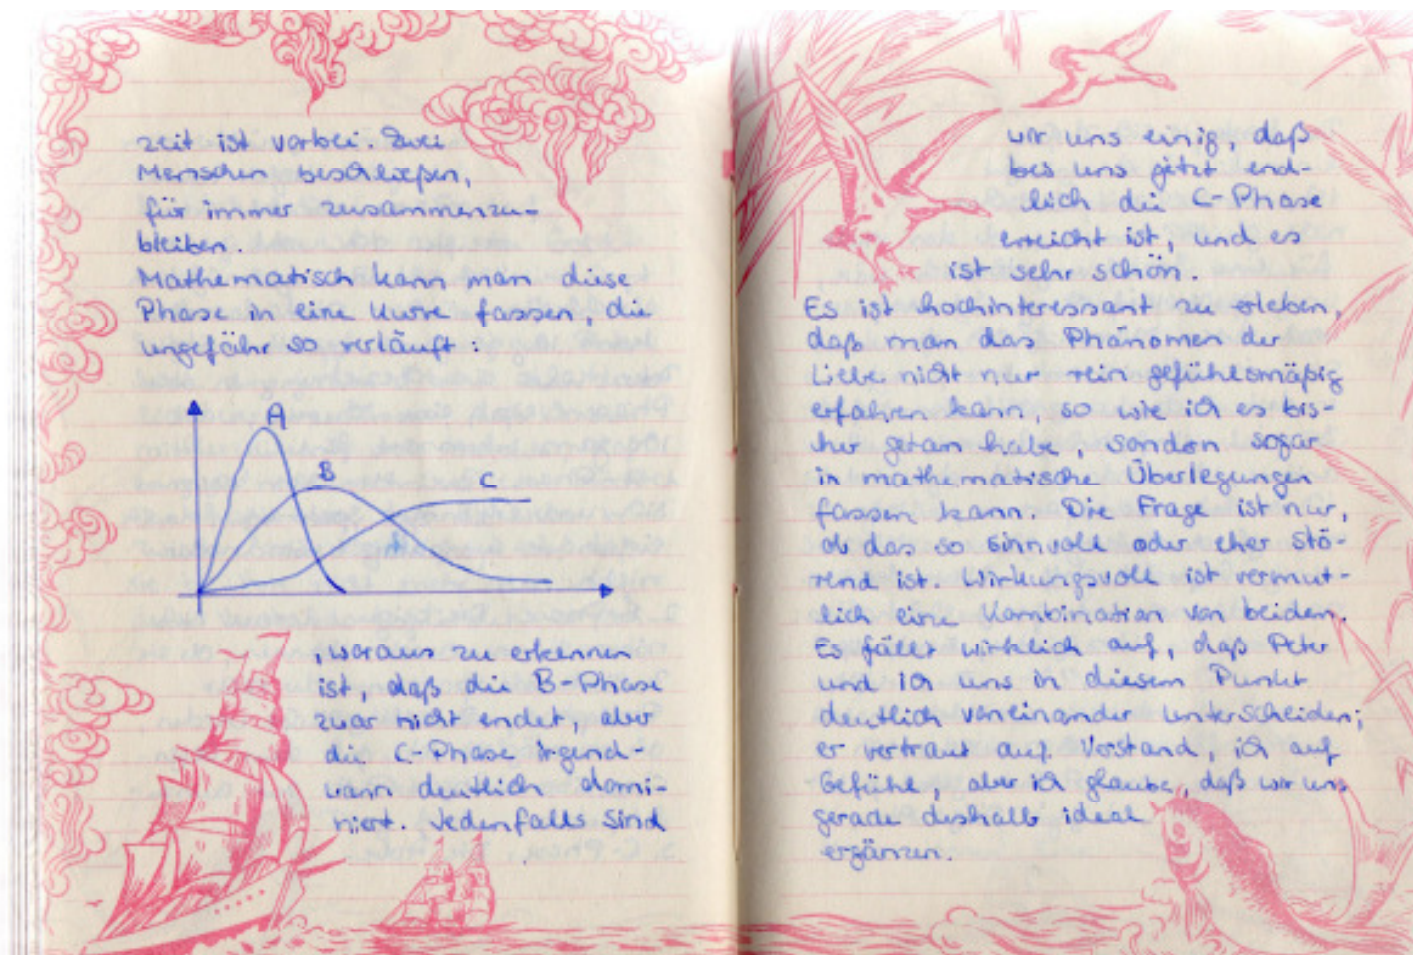 zeit ist vorbei. Zwei
Menschen beschließen,
für immer zusammenzu-
bleiben.
Mathematisch kann man diese
Phase in eine Kurve fassen, die
ungefähr so verläuft:
A
B
C
, woraus zu erkennen
ist, daß die B-Phase
zwar nicht endet, aber
die C-Phase irgend-
wann deutlich domi-
niert. Jedenfalls sind
wir uns einig, daß
bei uns jetzt end-
lich die C-Phase
erreicht ist, und es
ist sehr schön.
Es ist hochinteressant zu erleben,
daß man das Phänomen der
Liebe nicht nur rein gefühlsmäßig
erfahren kann, so wie ich es bis-
her getan habe, sondern sogar
in mathematische Überlegungen
fassen kann. Die Frage ist nur,
ob das so sinnvoll oder eher stö-
rend ist. Wirkungsvoll ist vermut-
lich eine Kombination von beidem.
Es fällt wirklich auf, daß Peter
und ich uns in diesem Punkt
deutlich voneinander unterscheiden;
er vertraut auf Verstand, ich auf
Gefühl, aber ich glaube, daß wir uns
gerade deshalb ideal
ergänzen.